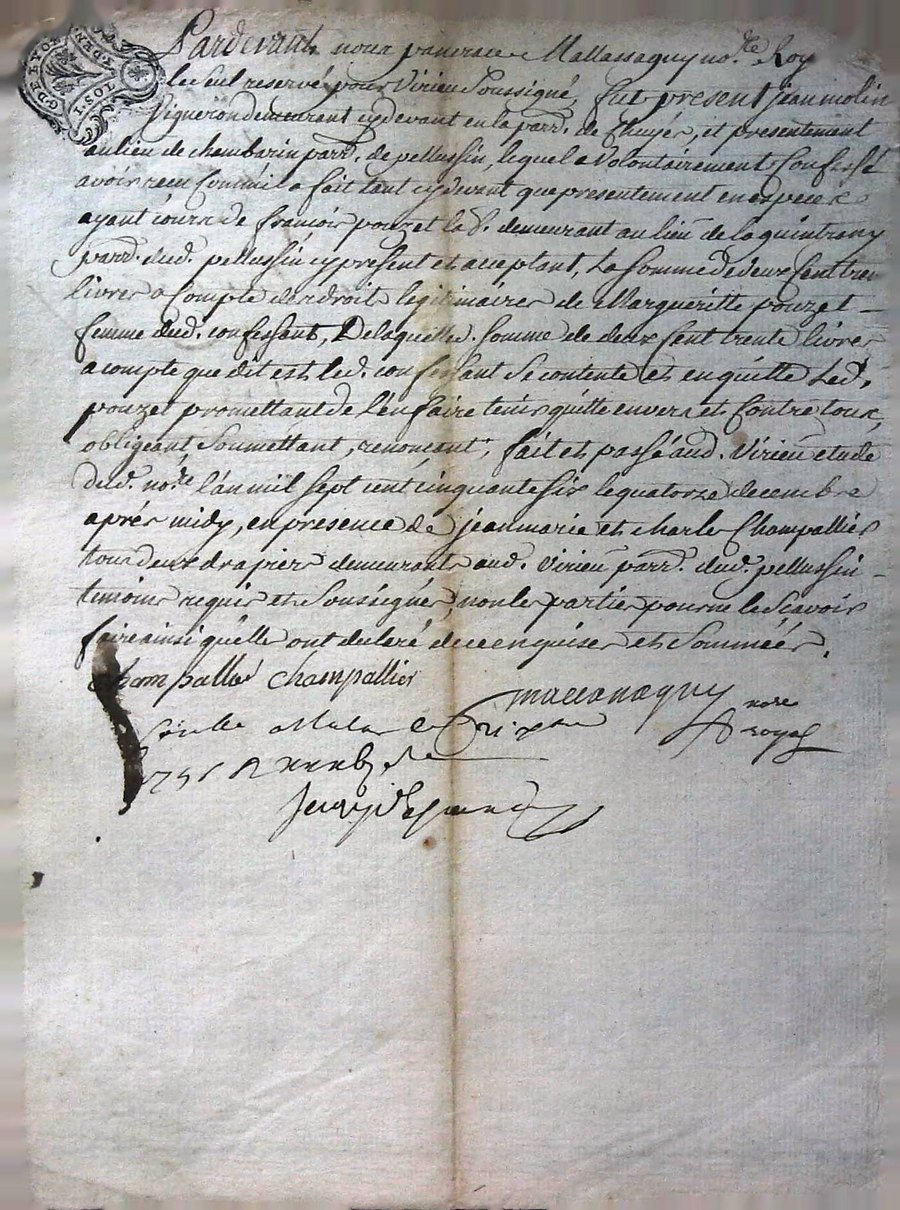 G. DE LYO
DEN.
Pardevant nous pancrace Mallassaguy no.re Roy
le seul reservé pour Virieu soussigné, fut present jean molin
Vigneron demeurant cy devant en la parr.e de Chuyer, et presentement
au lieu de chambarin parr.e de pellussin, lequel a volontairement Confessé
avoir receu Comme il a fait tant cy devant que presentement en especes
ayant cours de francois pouzet la.r demeurant au lieu de la quintrany
parr.e dud. pellussin cy present et acceptant, la somme de deux Cent trente
livres a Compte des droits legitimaires de Margueritte pouzet
femme dud. confessant, De laquelle somme de deux Cent trente livres
a compte que dit est led. confessant se contente et en quitte led.
pouzet promettant de l'en faire tenir quitte envers et Contre tous,
obligeant, soumettant, renonçant, fait et passé aud. Virieu etude
dud. no.re l'an mil sept cent cinquante six le quatorze decembre
aprés midy, en presence de jean marie et charle Champallier
tous deux drapiers demeurants aud. Virieu parr.e dud. pellussin
temoins requis et soussignés, non les parties pour ne le scavoir
faire ainsi qu'elle ont declaré de ce enquise et sommées,
champallie champallier
massassaguy nore
royal